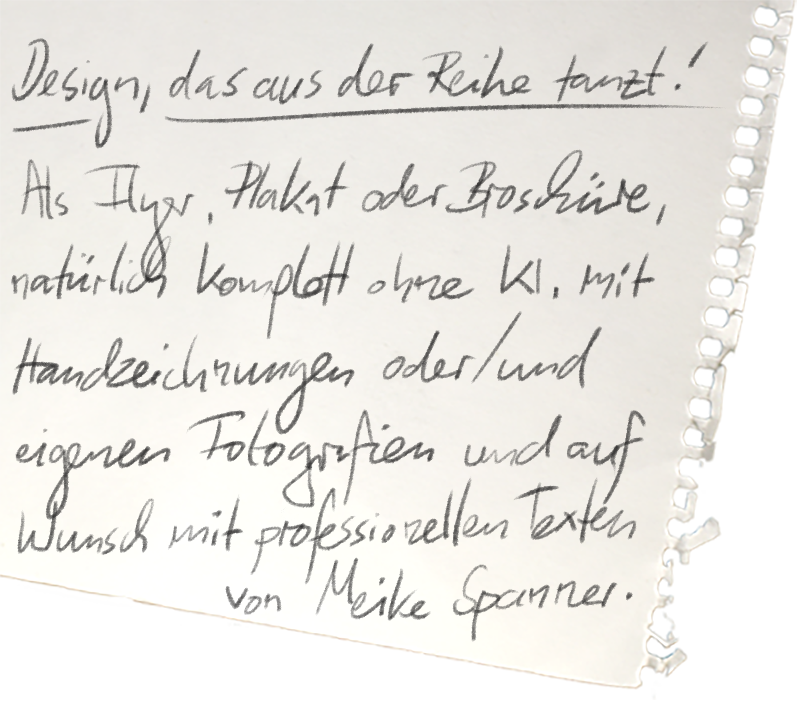 Design, das aus der Reihe tanzt!
Als Flyer, Plakat oder Broschüre,
natürlich komplett ohne KI, mit
Handzeichnungen oder/und
eigenen Fotografien und auf
Wunsch mit professionellen Texten
von Meike Spanner.